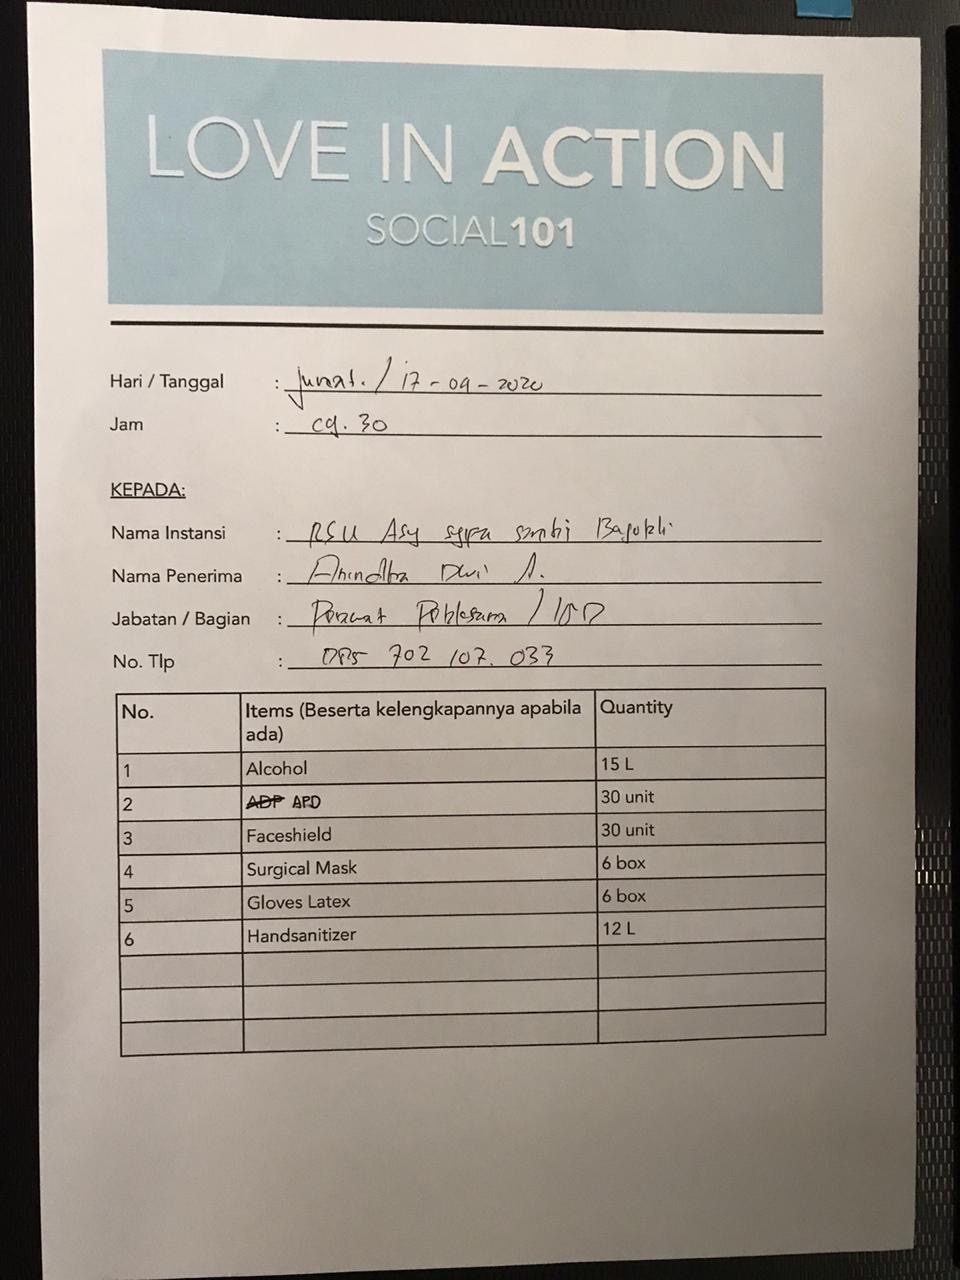 LOVE IN ACTION
SOCIAL101
Hari / Tanggal : Jumat. / 17 - 04 - 2020
Jam : 09. 30
KEPADA:
Nama Instansi : RSU Asy syifa sambi
Nama Penerima : Dwi A.
Jabatan / Bagian : Perawat / IGD
No. Tlp : 085 702 107. 033
No. Items (Beserta kelengkapannya apabila Quantity
ada)
1 Alcohol 15 L
2 ADP APD 30 unit
3 Faceshield 30 unit
4 Surgical Mask 6 box
5 Gloves Latex 6 box
6 Handsanitizer 12 L